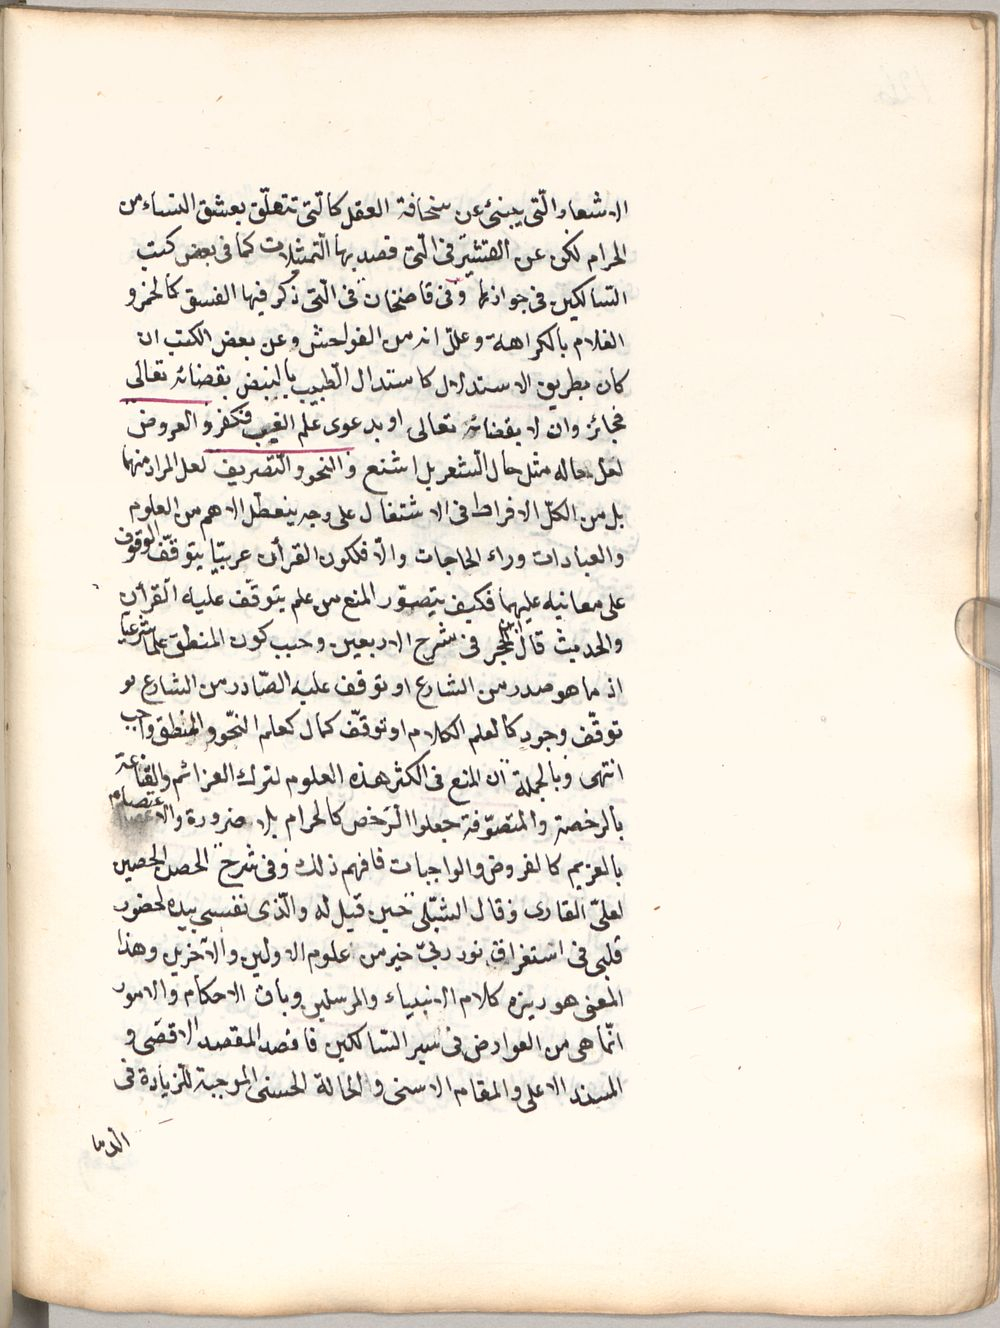 الاشعار والتى ينبئ عن سخافة العقل كالتى تتعلق بعشق النساء من
الحرام لكن عن القشيرى فى التى قصد بها التمثلات كما فى بعض كتب
السالكين فى جوازها وفى قاضخان فى التى ذكر فيها الفسق كالخمر و
الغلام بالكراهة وعلل انه من الفواحش وعن بعض الكتب ان
كان بطريق الاستدلال كاستدال الطبيب بالنبض بقضائه تعالى
فجائز وان لا بقضائه تعالى او بدعوى علم الغيب فكفر والعروض
لعل حاله مثل حال الشعر بل اشنع والنحو والتصريف لعل المراد منهما
بل من الكل الافراط فى الاشتغال على وجه ينعطل الاهم من العلوم
والعبادات وراء الحاجات والا فلكون القرأن عربيا يتوقف الوقوف
على معانيه عليهما فكيف يتصور المنع من علم يتوقف عليه القرأن
والحديث قال ابن الحجر فى شرح الاربعين وحسب كون المنطق علما شرعيا
اذ ما هو صدر من الشارع او توقف عليه الصادر من الشارع
توقف وجود كالعلم الكلام او توقف كمال كعلم النحو والمنطق واجب
انتهى وبالجملة ان المنع فى اكثر هذه العلوم لترك العزائم والقناعة
بالرخصة والمتصوفة جعلوا الرخص كالحرام بلا ضرورة والاعتصام
بالعزيم كالفروض والواجبات فافهم ذلك وفى شرح الحصن الحصين
لعلى القارى وقال الشبلى حين قيل له والذى نفسى بيده لحضور
قلبى فى استغراق نور ربى خير من علوم الاولين والاخرين وهذا
المعنى هو زبزه كلام الانبياء والمرسلين وباقى الاحكام والامور
انما هى من العوارض فى سير السالكين فاقصد المقصد الاقصى و
المسند الاعلى والمقام الاسنى والحالة الحسنى الموجبة للزيادة فى